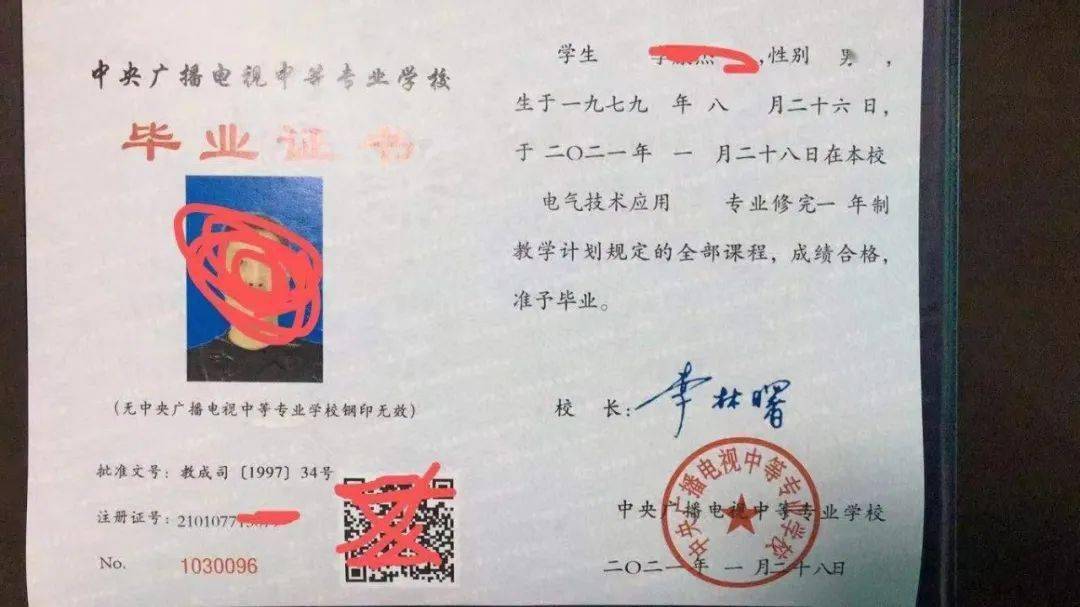 中央广播电视中等专业学校
毕业证书
(无中央广播电视中等专业学校钢印无效)
批准文号：教成司〔1997〕34号
注册证号：2101077
No. 1030096
学生 ,性别 男 ,
生于一九七九 年 八 月二十六日,
于 二〇二一年 一 月二十八日在本校
电气技术应用 专业修完一 年制
教学计划规定的全部课程, 成绩合格,
准予毕业。
校 长: 李林曙
中央广播电视中等专业学校
中央广播电视中等专业学校
二〇二一年 一 月二十八日